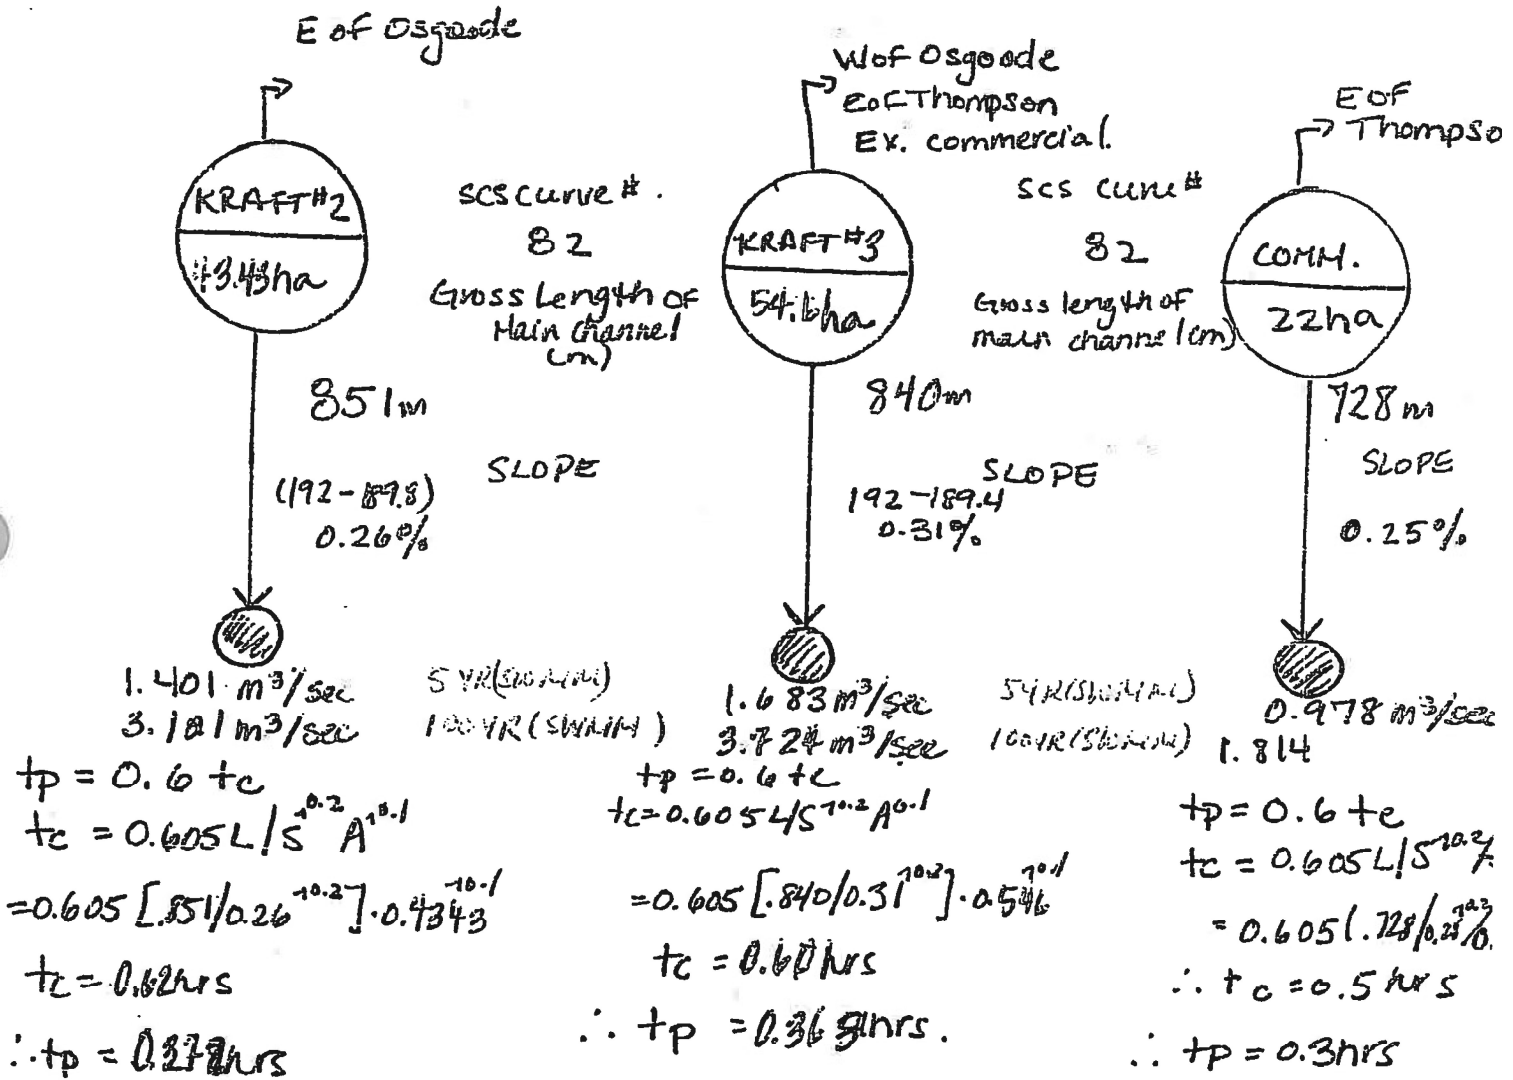 E of Osgoode
KRAFT #2
43.43ha
SCS curve #.
82
Gross Length of
Main Channel
(m)
851m
SLOPE
(192-189.8)
0.26%
1.401 m³/sec
5 YR (SWMM)
3.181 m³/sec
100 YR (SWMM)
tp = 0.6 tc
tc = 0.605 L/S^0.2 A^0.1
=0.605 [.851/0.26^0.2]·0.4343^0.1
tc = 0.62hrs
∴ tp = hrs
W of Osgoode
E of Thompson
Ex. commercial.
KRAFT #3
54.6ha
SCS curve #
82
Gross length of
main channel (m)
840m
SLOPE
192-189.4
0.31%
1.683 m³/sec
5 YR (SWMM)
3.724 m³/sec
100 YR (SWMM)
tp = 0.6 tc
tc = 0.605 L/S^0.2 A^0.1
=0.605 [.840/0.31^0.2]·0.546^0.1
tc = 0.60 hrs
∴ tp = hrs.
E of
Thompso
COMM.
22ha
728m
SLOPE
0.25%
0.978 m³/sec
1.814
tp = 0.6 tc
tc = 0.605 L/S^0.2/
= 0.605(.728/0.25^0.2/0.
∴ tc = 0.5 hrs
∴ tp = 0.3hrs